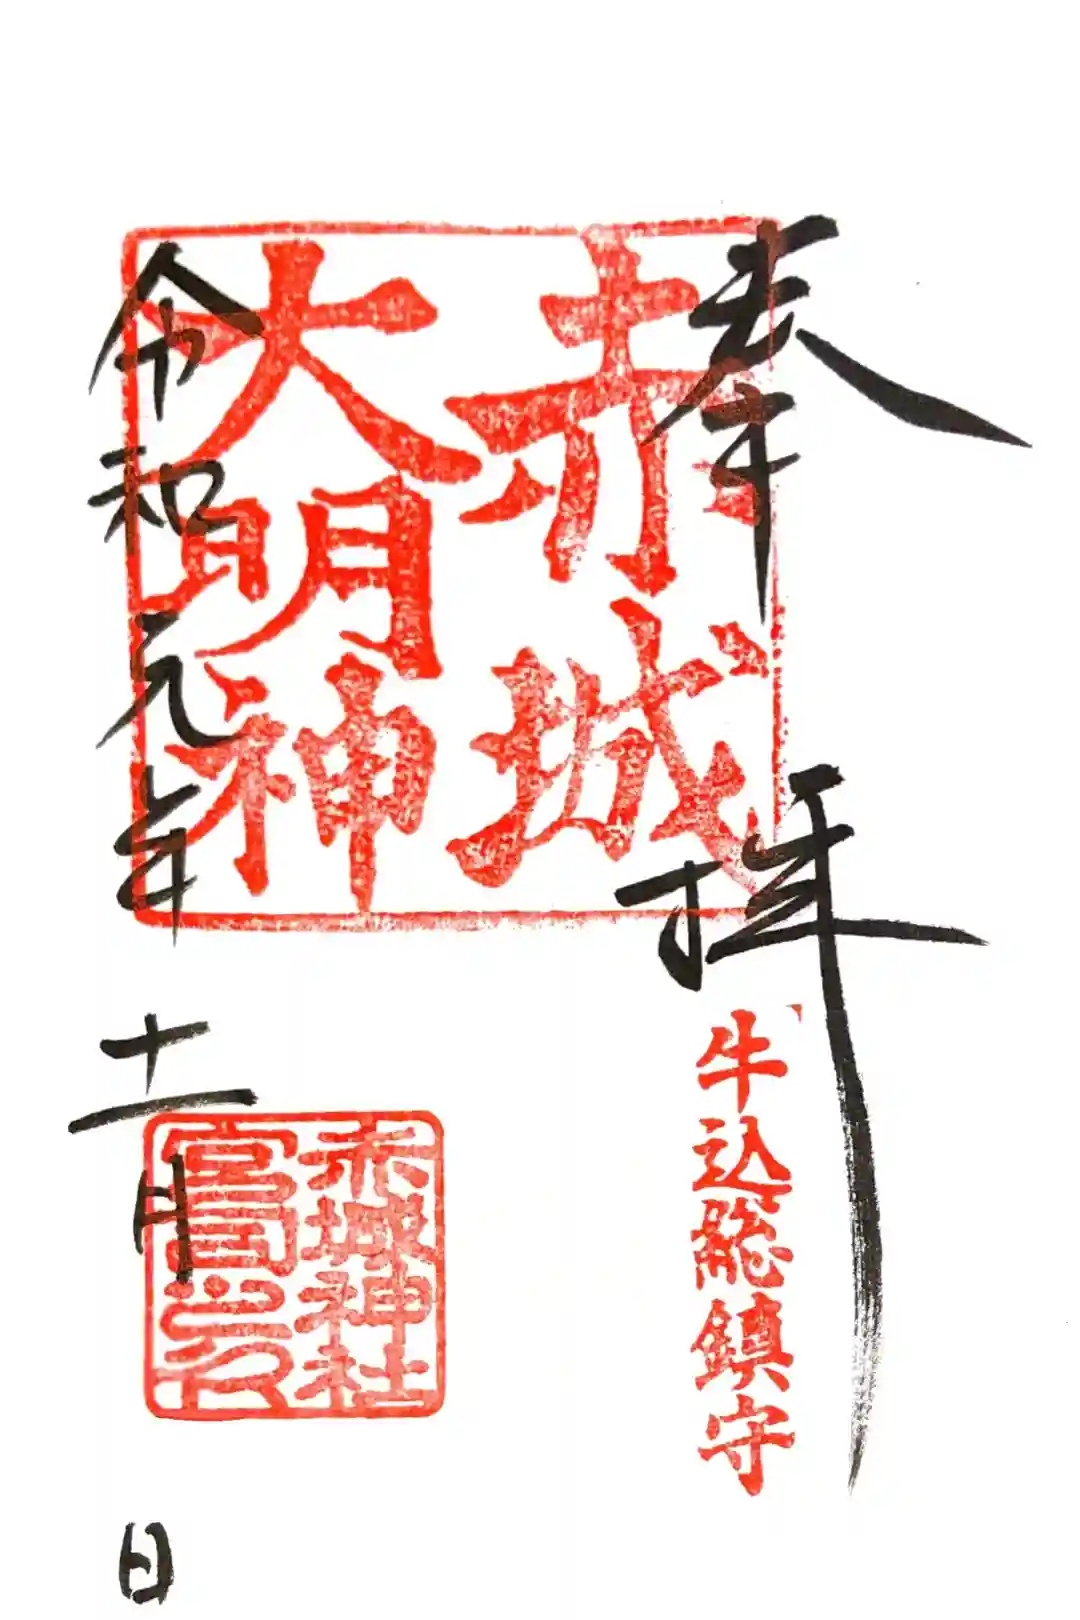 奉拝
牛込総鎮守
赤城
大明神
赤城神社
宮司之印
令和元年十一月 日